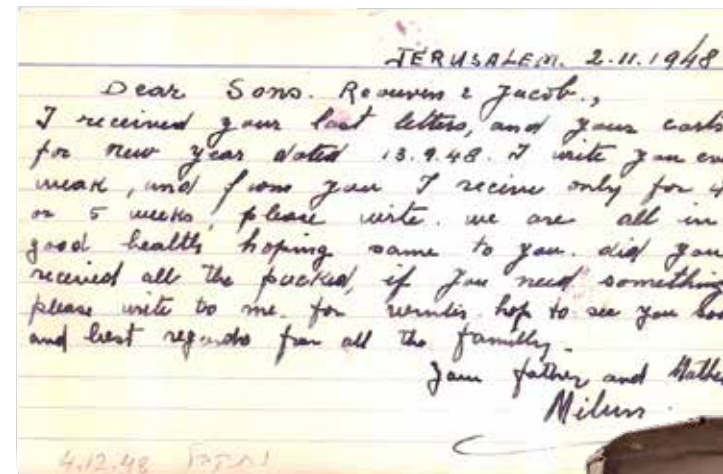 JERUSALEM. 2.11.1948
Dear Sons. Reouven & Jacob.,
I received your last letters, and your
for new year dated 13.9.48. I write you
weak, and from you I recive only for 4
or 5 weeks, please write. we are all in
good health hoping same to you. did you
received all the packed, if you need something
please write to me. for hop to see you
and best regards from all the familly.
Your father and Mother
4.12.48 נתקבל